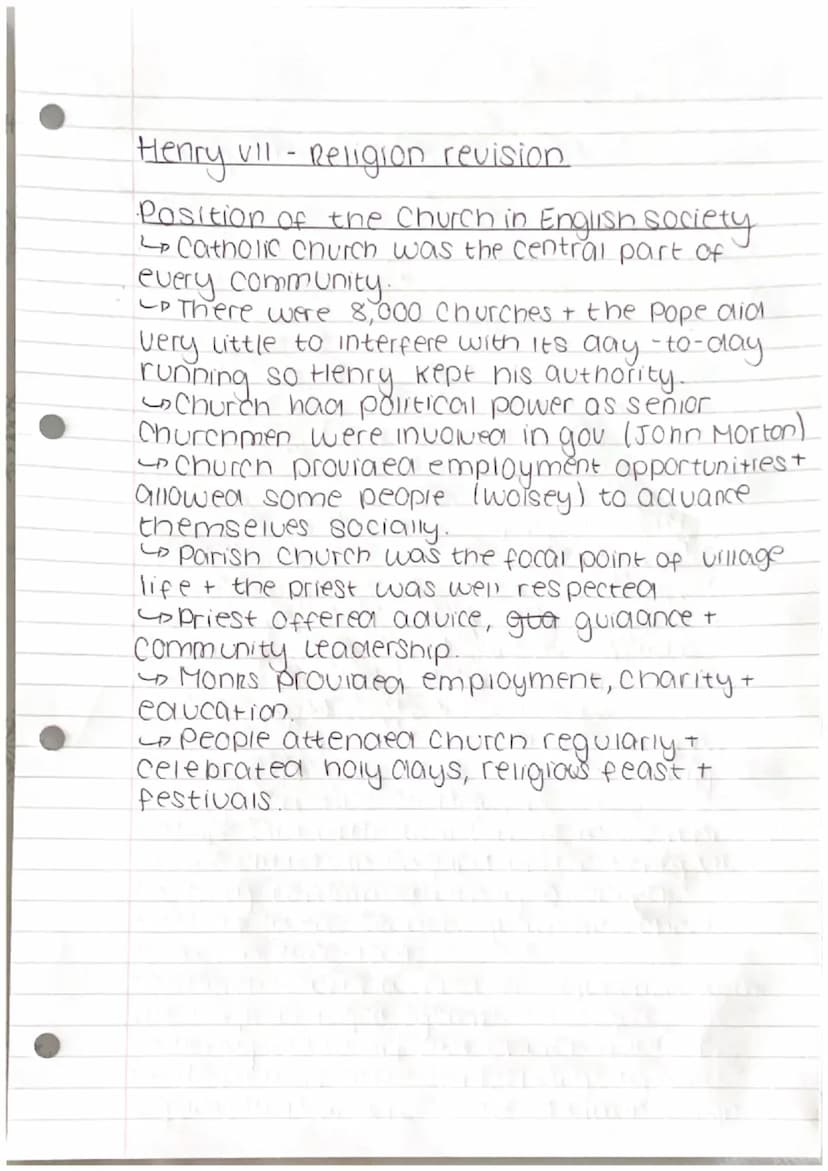 Henry VII - Religion revision
Position of the Church in English society
↳ Catholic church was the central part of
every community.
↳ There were 8,000 churches + the Pope did
very little to interfere with its day-to-day
running so Henry kept his authority.
↳ Church had political power as senior
Churchmen were involved in gov (John Morton)
↳ Church provided employment opportunities +
allowed some people (Wolsey) to advance
themselves socially.
↳ Parish church was the focal point of village
life + the priest was well respected
↳ Priest offered advice, guidance +
community leadership.
↳ Monks provided employment, charity +
education.
↳ People attended church regularly +
celebrated holy days, religious feast +
festivals.